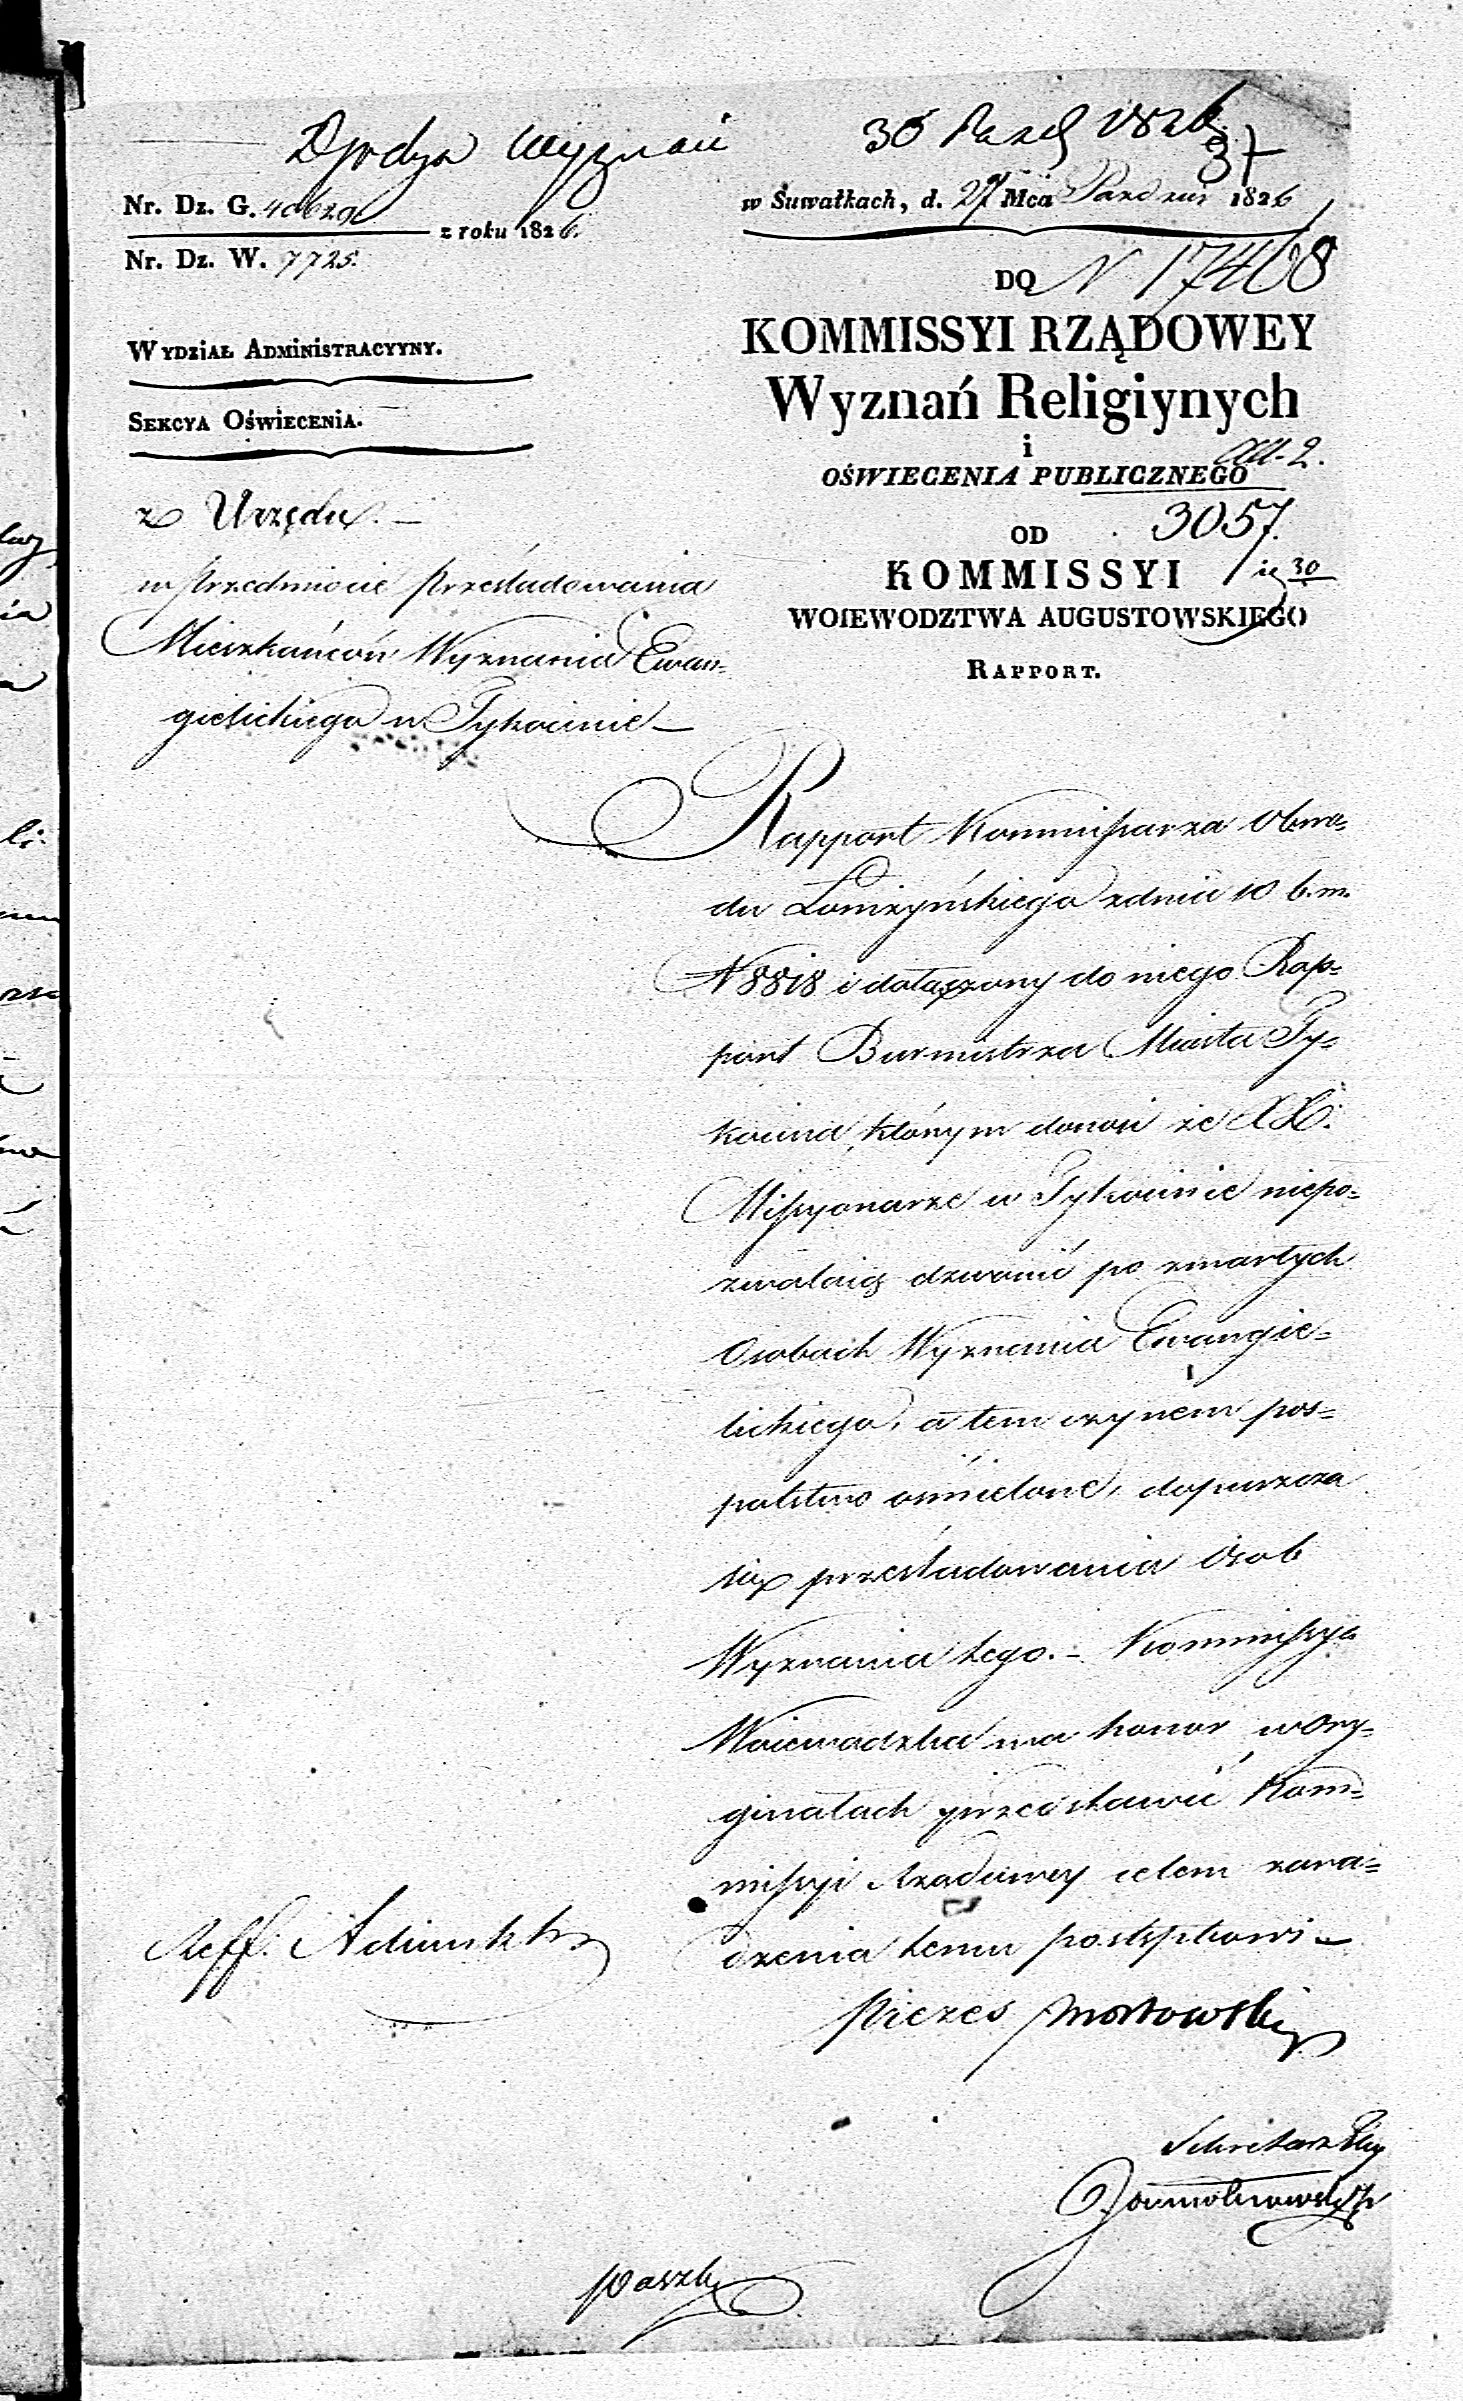 Wyznań
30 Paźd 1826
37
Nr. Dz. G. 40629
z roku 1826.
Nr. Dz. W. 7725.
w Suwałkach, d. 27 Mca Paźdz 1826
DO N 17468
KOMMISSYI RZĄDOWEY
Wyznań Religiynych
i
OŚWIECENIA PUBLICZNEGO
3057.
OD
KOMMISSYI
30
WOIEWODZTWA AUGUSTOWSKIEGO
RAPPORT.
WYDZIAŁ ADMINISTRACYYNY.
SEKCYA OŚWIECENIA.
z Urzędu. –
w przedmiocie prześladowania
Mieszkańców Wyznania Ewan-
gielickiego w Tykocinie –
Rapport Kommissarza Obwo-
du Łomżyńskiego z dnia 10 b. m.
N 8818 i dołączony do niego Rap-
port Burmistrza Miasta Ty-
kocina, którym donosi że XX.
Missyonarze w Tykocinie niepo-
zwalaią dzwonić po zmarłych
Osobach Wyznania Ewangie-
lickiego, a tem czynem pos-
polstwo ośmielone, dopuszcza
się prześladowania Osob
Wyznania tego. – Kommissya
Woiewodzka ma honor w Ory-
ginałach przedstawić Kom-
missyi Rządowey celem zara-
dzenia temu postępkowi –
Reff.
Prezes Mostowski
Sekretarz